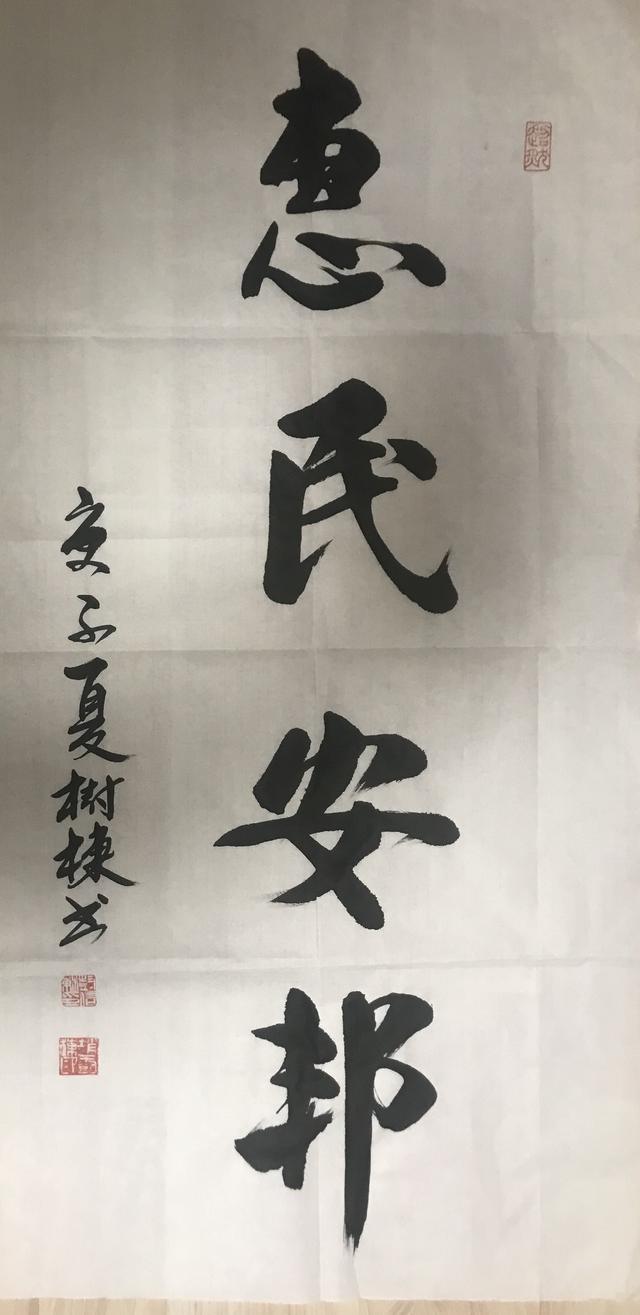 惠民安邦
庚子夏樹棟书